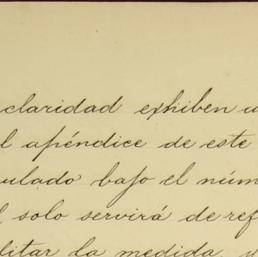 claridad exhiben u
l apéndice de este
ulado bajo el núm
l solo servirá de ref
litar la medida y